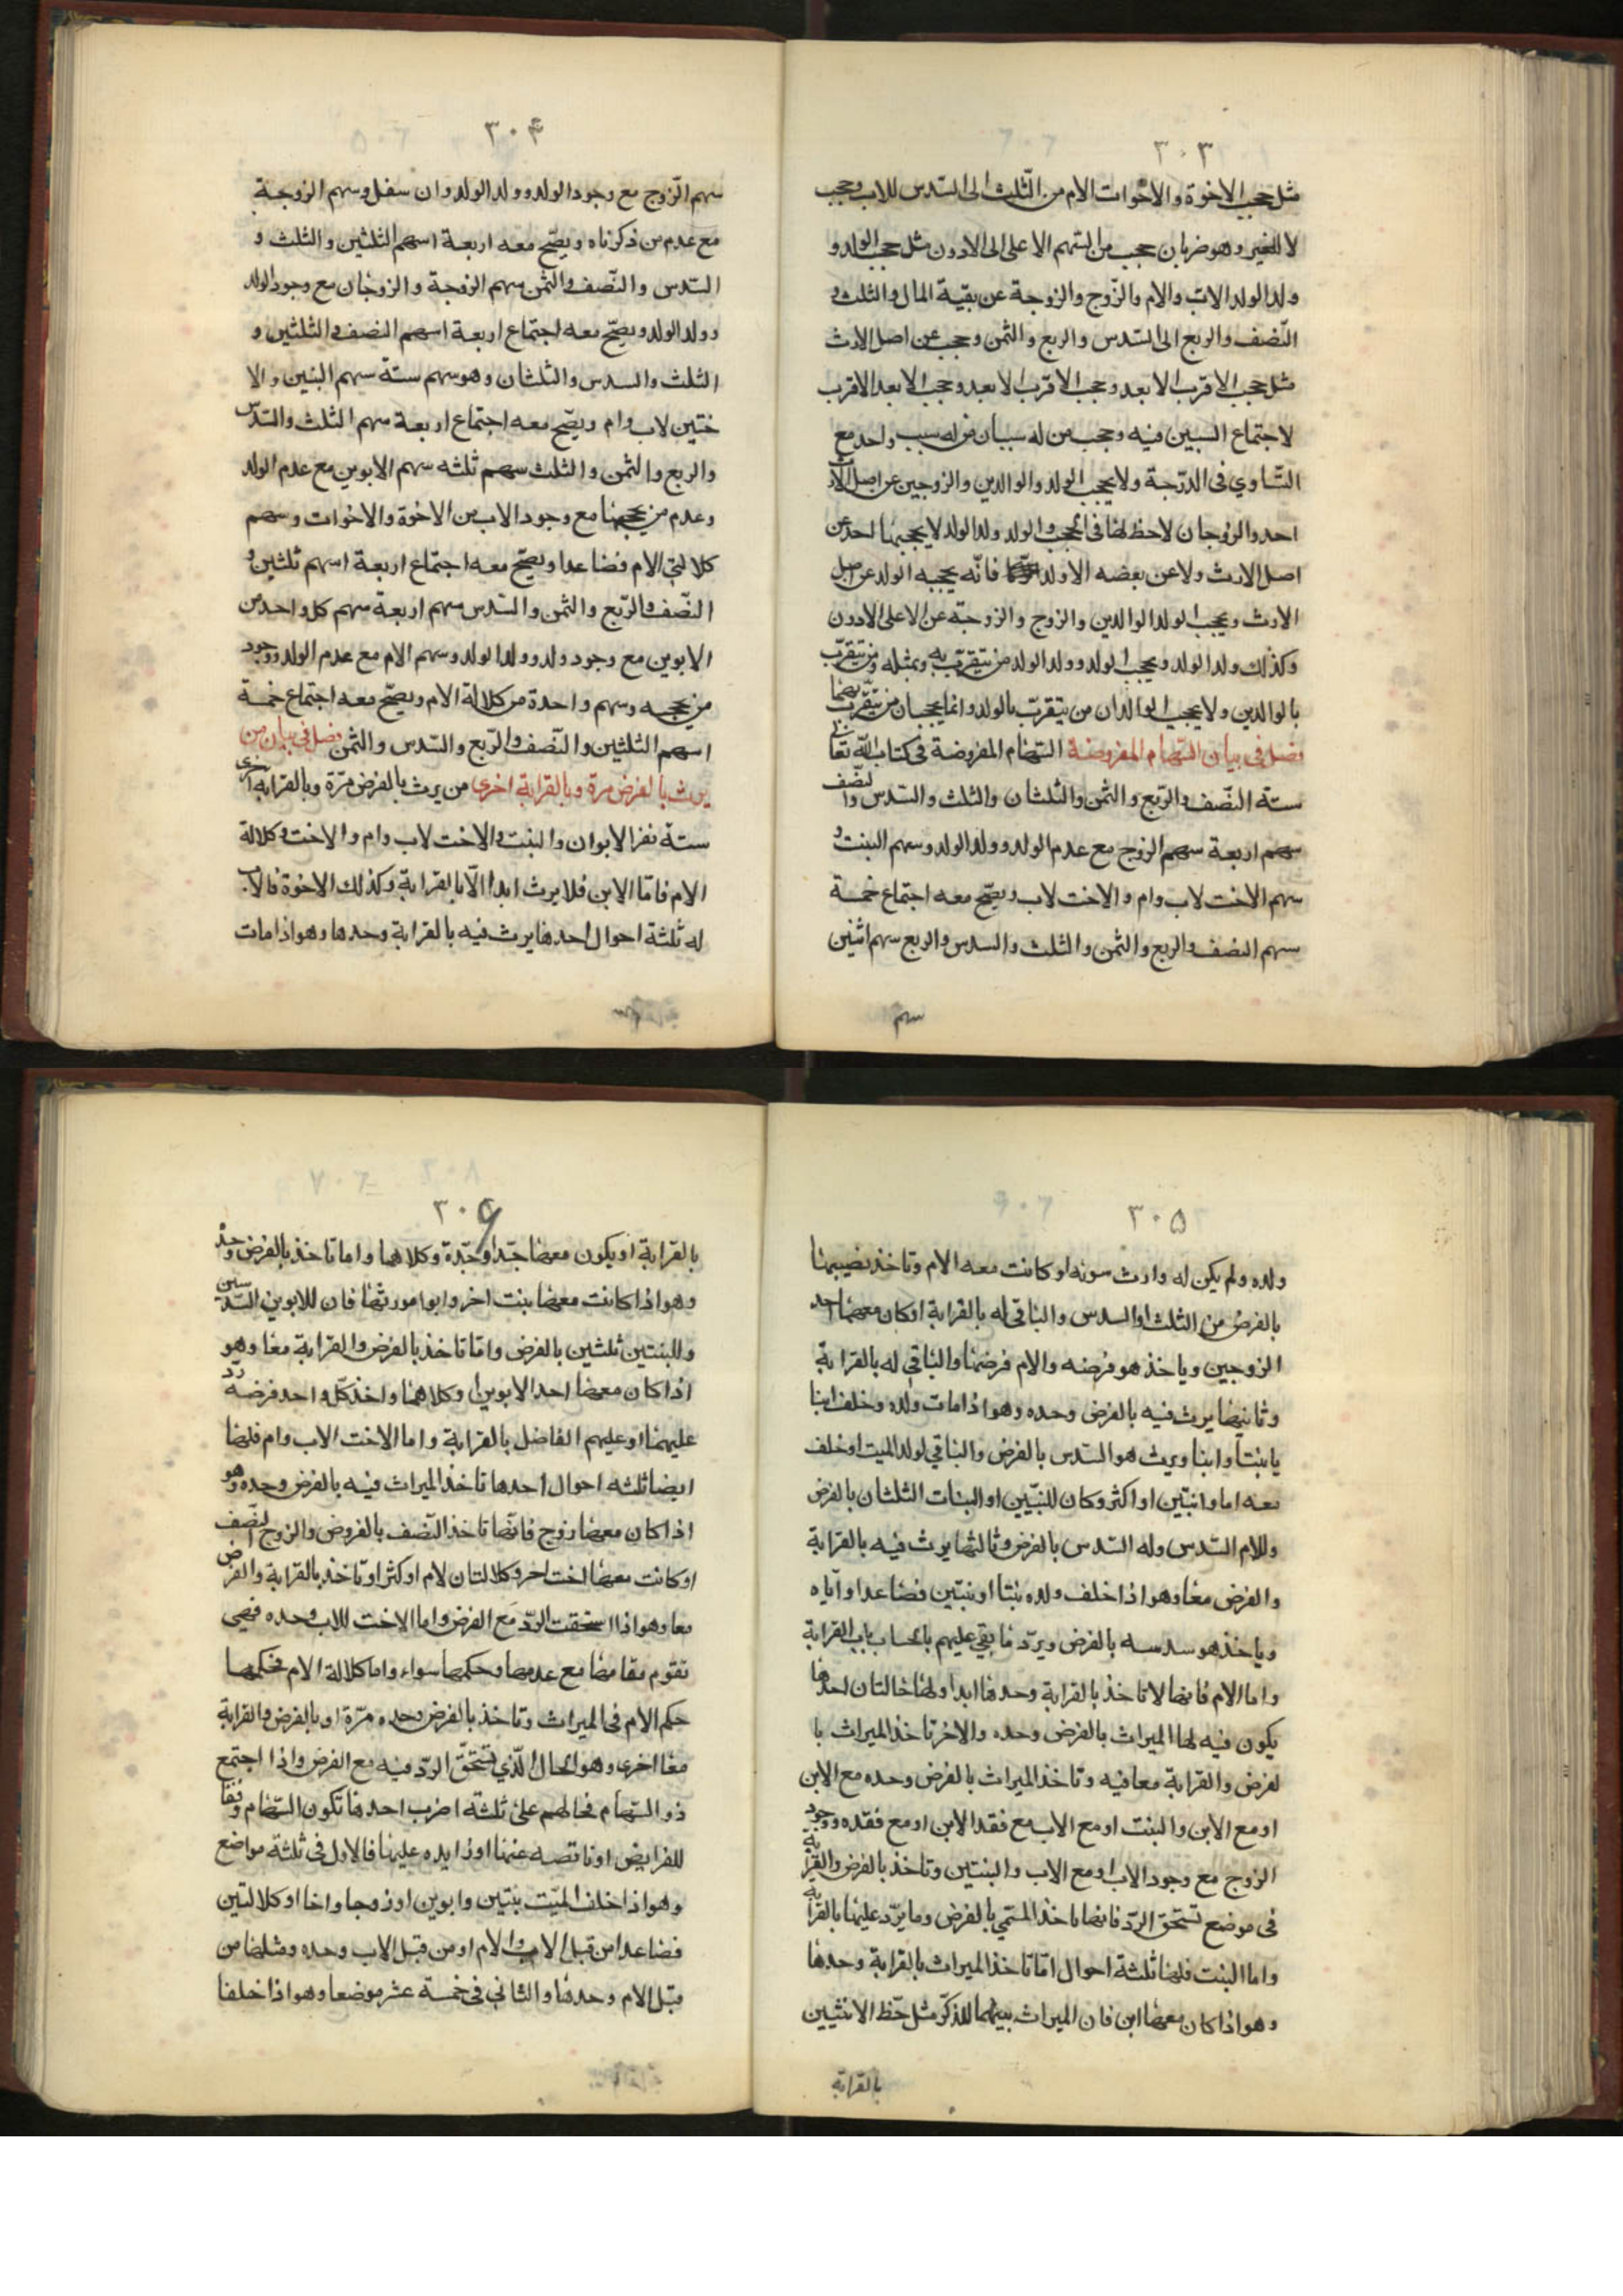 ٣٠٣
مثل حجب الاخوة والاخوات الام من الثلث الى السّدس للاب وحجب
لا للغير وهو ضربان حجب من السّهم الاعلى الى الادون مثل حجب الولد و
ولد الولد الاب والام والزّوج والزوجة عن بقية المال والثلث و
النّصف والربع الى السّدس والربع والثمن وحجب عن اصل الارث
مثل حجب الاقرب الابعد وحجب الاقرب الابعد وحجب الابعد الاقرب
لاجتماع السببين فيه وحجب من له سببان من له سبب واحد مع
التّساوي في الدّرجة ولا يحجب الولد والوالدين والزوجين عن اصل الارث
احد والزوجان لاحظ لهما في الحجب والولد ولد الولد لا يحجبهما احد عن
اصل الارث ولا عن بعضه الا ولد الولد فانّه يحجبه الولد عن اصل
الارث ويحجب الولد الوالدين والزوج والزوجة عن الاعلى الادون
وكذلك ولد الولد ويحجب الولد وولد الولد من يتقرّب به وبمثله ومن يتقرّب
بالوالدين ولا يحجب الوالدان من يتقرب بالولد وانما يحجبان من يتقرّب بهما
فصل في بيان السّهام المفروضة السّهام المفروضة في كتاب الله تعالى
ستة النّصف والرّبع والثمن والثلثان والثلث والسّدس والنّصف
سهم اربعة سهم الزوج مع عدم الولد وولد الولد وسهم البنت و
سهم الاخت لاب وام والاخت لاب ويصّح معه اجتماع خمسة
سهم النصف والربع والثمن والثلث والسدس والربع سهم اثنين
سهم
٣٠۴
سهم الزّوج مع وجود الولد وولد الولد وان سفل وسهم الزوجة
مع عدم من ذكرناه ويصّح معه اربعة اسهم الثلثين والثلث و
السّدس والنّصف والثمن سهم الزوجة والزوجان مع وجود الولد
وولد الولد ويصحّ معه اجتماع اربعة اسهم النصف والثلثين و
الثلث والسدس والثلثان وهو سهم ستة سهم البنين والا
ختين لاب وام ويصّح معه اجتماع اربعة سهم الثلث والسّدس
والربع والثمن والثلث سهم ثلثه سهم الابوين مع عدم الولد
وعدم من يحجبهما مع وجود الاب من الاخوة والاخوات وسهم
كلالتي الام فصاعدا ويصّح معه اجتماع اربعة اسهم ثلثين و
النّصف والرّبع والثمن والسّدس سهم اربعة سهم كل واحد من
الابوين مع وجود ولد وولد الولد وسهم الام مع عدم الولد ووجود
من يحجبه وسهم واحدة من كلالة الام ويصّح معه اجتماع خمسة
اسهم الثلثين والنّصف والرّبع والسّدس والثّمن فصل في بيان من
يرث بالفرض مرة وبالقرابة اخرى من يرث بالفرض مرّة وبالقرابة اخرى
ستة نفر الابوان والبنت والاخت لاب وام والاخت وكلالة
الام فامّا الابن فلا يرث ابدا الّا بالقرابة وكذلك الاخوة فالاب
له ثلثة احوال احدها يرث فيه بالقرابة وحدها وهو اذا مات
٣٠۵
ولده ولم يكن له وارث سونه او كانت معه الام وتاخذ نصيبها
بالفرض من الثلث او السدس والباقي له بالقرابة او كان معهما احد
الزوجين وياخذ هو فرضه والام فرضها والباقي له بالقرابة
وثانيها يرث فيه بالفرض وحده وهو اذا مات ولده وخلف ابنا
يا بنتا وابنا ويرث هو السّدس بالفرض والباقي لولد الميت او خلف
معه اما وابنتين او اكثر وكان للبنتين او البنات الثلثان بالفرض
وللام السّدس وله السّدس بالفرض وثالثها يرث فيه بالقرابة
والفرض معا وهو اذا خلف ولده بنتا او بنتين فصاعدا واياه
وياخذ هو سدسه بالفرض ويردّ ما بقي عليهم بالحساب باب القرابة
واما الام فانها لا تاخذ بالقرابة وحدها ابدا ولها حالتان احدها
يكون فيه لها الميراث بالفرض وحده والاخر تاخذ الميراث با
لفرض والقرابة معا فيه وتاخذ الميراث بالفرض وحده مع الابن
او مع الابن والبنت او مع الاب مع فقد الابن او مع فقده ووجود
الزوج مع وجود الاب او مع الاب والبنتين وتاخذ بالفرض والقرابة
في موضع تستحق الرّد فانها تاخذ المسّمي بالفرض وما يردّ عليها بالقرابة
واما البنت فلها ثلثة احوال امّا تاخذ الميراث بالقرابة وحدها
وهو اذا كان معها ابن فان الميراث بينهما للذكر مثل حّظ الانثيين
بالقرابة
٣٠۶
بالقرابة او يكون معها جدّ او جدّة وكلاهما واما تاخذ بالفرض وحده
وهو اذا كانت معها بنت اخر وابوا مورثها فان للابوين السّدسين
وللبنتين ثلثين بالفرض وامّا تاخذ بالفرض والقرابة معا وهو
اذا كان معها احد الابوين او كلاهما واخذ كلّ واحد فرضه ردّ
عليهما او عليهم الفاضل بالقرابة واما الاخت الاب وام فلها
ايضا ثلثه احوال احدها تاخذ الميراث فيه بالفرض وحده وهو
اذا كان معها زوج فانّها تاخذ النّصف بالفروض والزوج النّصف
او كانت معها اخت اخر وكلالتان لام او كثر او تاخذ بالقرابة والفرض
معا وهو اذا استحقت الردّ مع الفرض واما الاخت للاب وحده فهي
تقوم مقامها مع عدمها وحكمها سواء واما كلالة الام فحكمها
حكم الام في الميراث وتاخذ بالفرض وحده مرّة او بالفرض والقرابة
معا اخرى وهو الحال الّذي تستحّق الردّ فيه مع الفرض واذا اجتمع
ذو السّهام فحالهم على ثلثة اضرب احدها تكون السّهام وفقا
للفرايض او ناقصه عنها او زايده عليها فالاول في ثلثة مواضع
وهو اذا خلف الميّت بنتين وابوين او زوجا واخا او كلالتين
فصاعدا من قبل الاب والام او من قبل الاب وحده ومثلها من
قبل الام وحدها والثاني في خمسة عشر موضعا وهو اذا خلفا